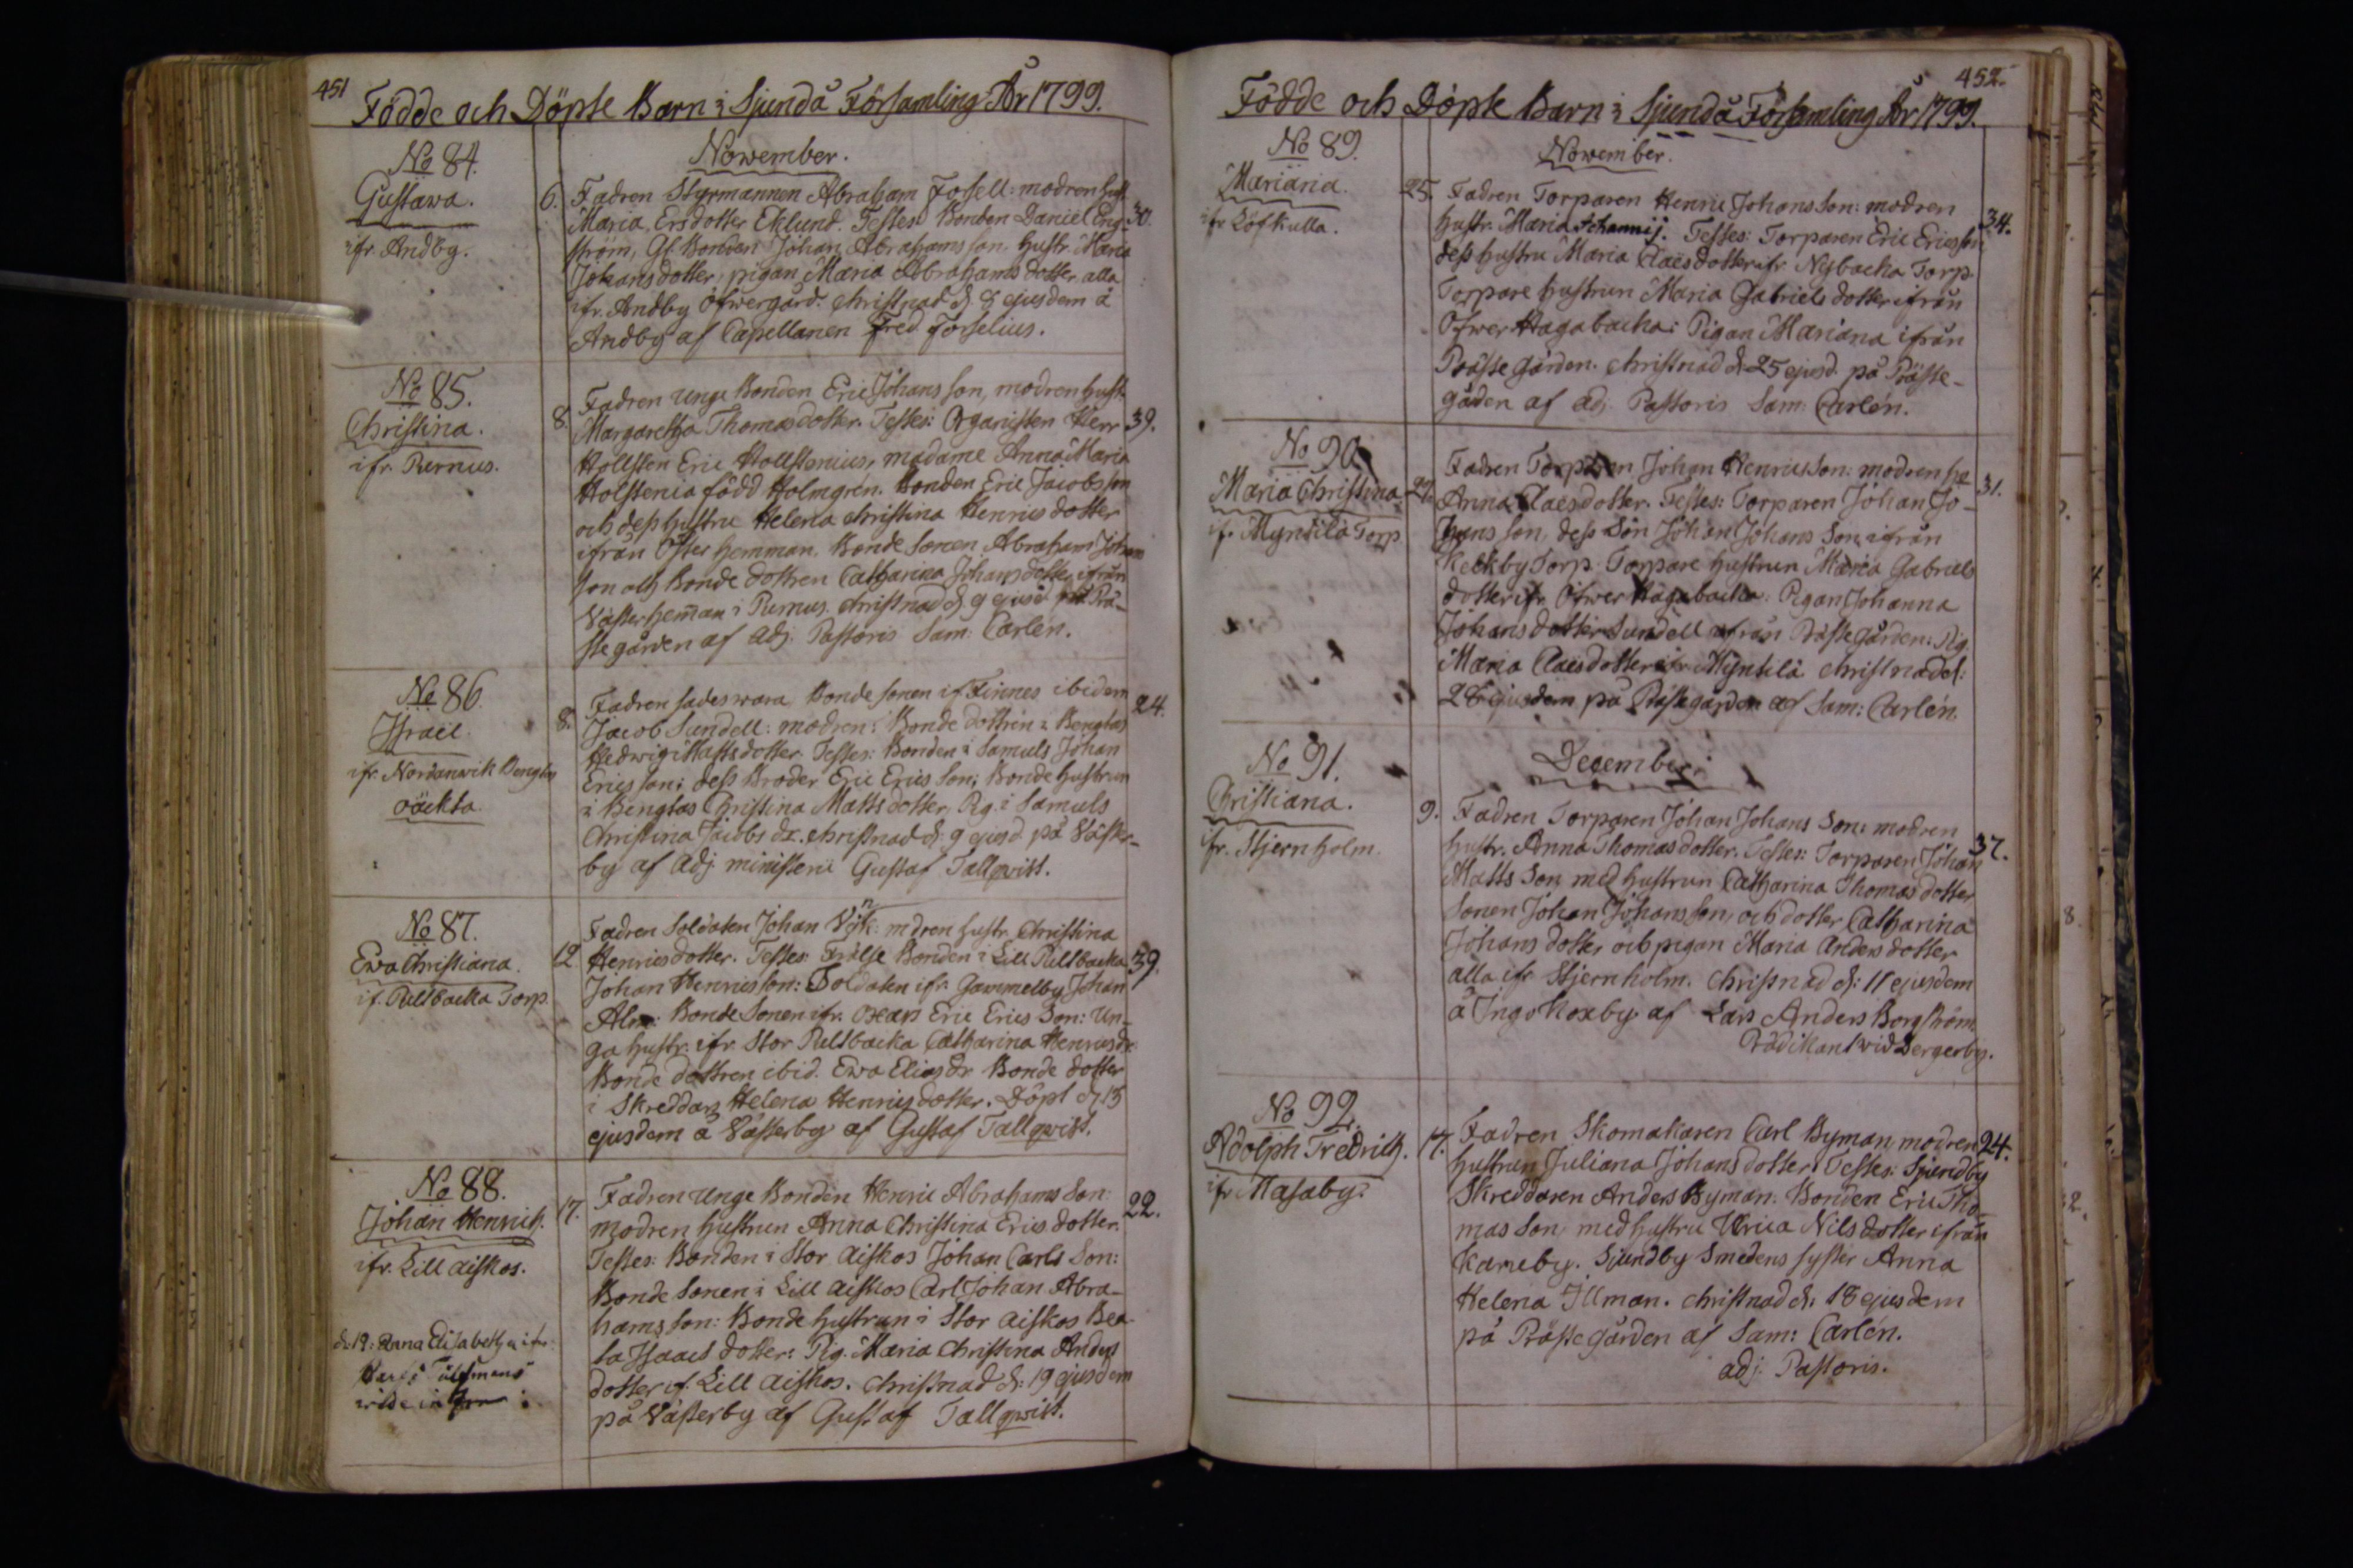 451
Födde och Döpte Barn i Sjundå Församling År 1799.
November.
No 84.
Gustawa.
ifr. Andby.
6.
Fadren Styrmannen Abraham Forsell: modren hust.
Maria Ersdotter Eklund. Testes: Bonden Daniel Eng-
30.
ström, Gl. Bonden Johan Abrahams son. hustr. Maria
Johansdotter, pigan Maria Abrahams dotter alla
ifr. Andby Öfwergård. christnad d. 8 ejusdem å
Andby af Capellanen Fred. Forselius.
No 85.
Christina.
ifr. Purnus.
8.
Fadren unge Bonden Eric Johans son, modren hust.
Margaretha Thomas dotter. Testes: Organisten Herr
39.
Hollsten Eric Hollstenius, madame Anna Maria
Holstenia född Holmgrén. Bonden Eric Jacobs son
och dess hustru Helena Christina Henrics dotter
ifrån Öster hemman. Bonde Sonen Abraham Johans
son och Bonde dottren Catharina Johans dotter ifrån
Väster hem̄an i Purnus. christnad d. 9 ejusd. på Prä-
stegården af adj. Pastoris Sam: Carlén.
No 86.
Israel.
ifr. Nordanwik Bengtas
oäckta.
8.
Fadren sades wara Bonde sonen if. Finnes ibidem
24.
Jacob Sundell: modren: Bonde dottren i Bengtas
Hedwig Matts dotter. Testes: Bonden i Samuels Johan
Erics son; dess Broder Eric Erics Son; Bonde hustrun
i Bengtas Christina Matts dotter, Pig. i Samuels
Christina Jacobs dr. christnad d. 9 ejusd. på Väster-
by af adj. ministerii Gustaf Tallqwist.
No 87.
Ewa Christiana.
if. Pilsbacka Torp.
12.
Fadren Soldaten Johan Vik: modren hustr. Christina
Henrics dotter. Testes: Frälse Bonden i Lill Pilsbacka
39.
Johan Henrics son: Soldaten ifr. Gammelby Johan
Alm: Bonde Sonen ifr. Oxars Eric Erics Son: un-
ga hustr. ifr. Stor Pilsbacka Catharina Henrics dr.
Bonde dottren ibid. Ewa Elias dr Bonde dotter
i Skreddars Helena Henrics dotter. Döpt d. 13
ejusdem å Västerby af Gustaf Tallqwist.
No 88.
Johan Henrich.
ifr. Lill aiskos.
17.
Fadren unge Bonden Henric Abrahams Son:
22.
modren hustrun Anna Christina Erics dotter.
Testes: Bonden i Stor aiskos Johan Carls Son:
Bonde Sonen i Lill aiskos Carl Johan Abra-
hams son: Bonde hustrun i Stor aiskos Bea-
ta Isaacs dotter: Pig. Maria Christina Anders
dotter if. Lill aiskos. christnad d: 19 ejusdem
på Västerby af Gustaf Tallqwist.
d: 19: Anna Elisabeth ifr.
452.
Födde och Döpte Barn i Sjundå Församling År 1799.
November.
No 89.
Mariana.
ifr. Löfkulla.
25.
Fadren Torparen Henric Johans son: modren
hustr. Maria Johannis. Testes: Torparen Eric Ericsson
34.
dess hustru Maria Claes dotter ifr. Nybacka Torp.
Torpare hustrun Maria Gabriels dotter ifrån
Öfwer Hagabacka: Pigan Mariana ifrån
Präste gården. christnad d: 25 ejusd. på Präste-
gården af adj. Pastoris Sam: Carlén.
No 90.
Maria Christina
if. Myntilä Torp
27.
Fadren Torparen Johan Henrics son: modren h.
Anna Claes dotter. Testes: Torparen Johan Jo-
31.
hans son, dess Son Johan Johans Son, ifrån
Keckby Torp. Torpare hustrun Maria Gabriels
dotter ifr. Öfwer Hagabacka: Pigan Johanna
Johans dotter Sundell ifrån Prästegården: Pig.
Maria Claes dotter ifr. Myntilä christnad d:
28 ejusdem på Prästegården af Sam: Carlén.
December.
No 91.
Christiana.
ifr. Stjernholm.
9.
Fadren Torparen Johan Johans Son: modren
hustr. Anna Thomas dotter. Testes: Torparen Johan
37.
Matts Son, med hustrun Catharina Thomas dotter
Sonen Johan Johans son, och dotter Catharina
Johans dotter och pigan Maria Anders dotter
alla ifr. Stjernholm. christnad d: 11 ejusdem
å Ingvitsby af Lars Anders Borgström.
Prädikant wid Bergerby.
No 92.
Adolph Fredrich.
ifr. Masaby.
17.
Fadren Skomakaren Carl Byman, modren
24.
hustrun Juliana Johans dotter. Testes: Sjundby
Skreddaren Anders Byman. Bonden Eric Tho-
mas Son, med hustru Ulrica Nils dotter ifrån
Karuby. Sjundby Smedens syster Anna
Helena Illman. christnad d: 18 ejusdem
på Prästegården af Sam: Carlén.
adj: Pastoris.